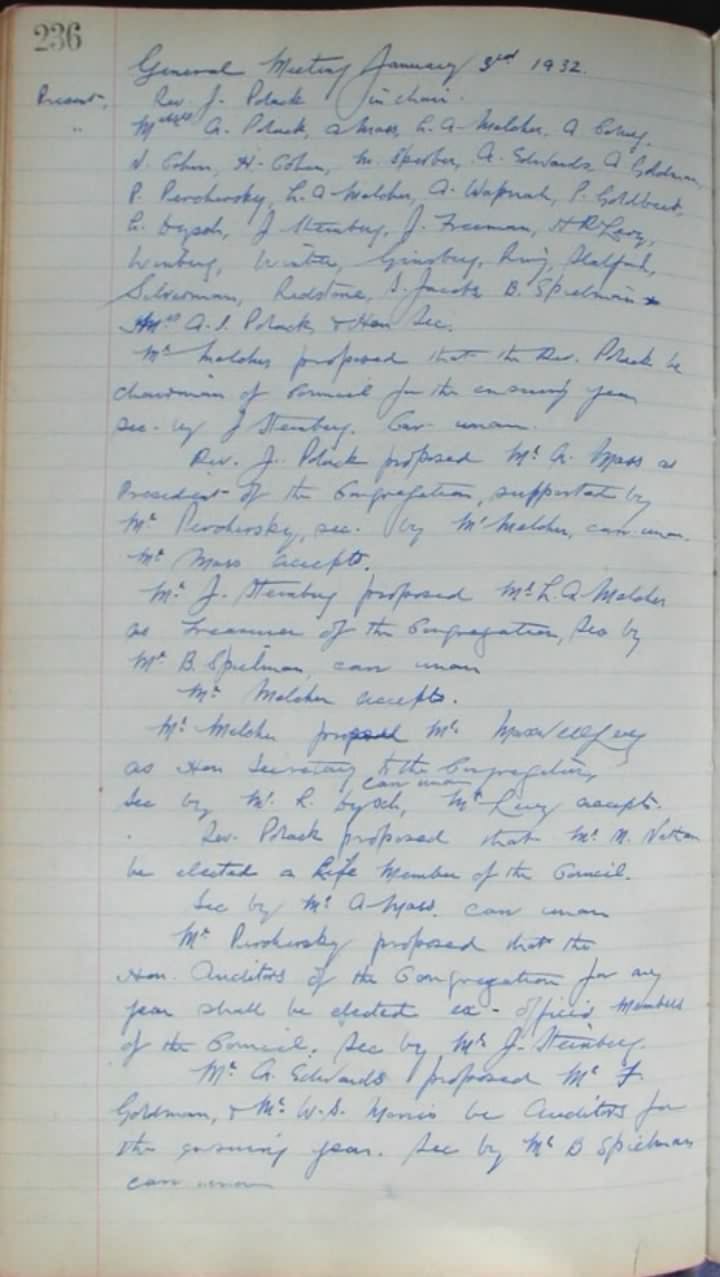 236
General Meeting January 3rd 1932.
Present, Rev. J. Polack in chair.
" Messrs A. Polack, A Mass, L. A. Melcher, A
N. Cohen, H. Cohen, M. Sperber, A. Edwards, A Goldman,
P. Perchersky, L. A. Melcher, A. P. Goldberg,
L. Dysch, J Steinberg, J. Freeman, H R Levy,
Winberg, Winter, Ginsberg, Ring,
Silverman, Redstone, I. Jacobs B. Spielman &
A. I. Polack, & Hon Sec.
Mr Melcher proposed that the Rev. Polack be
chairman of Council for the ensuing year
sec. by J Steinberg. Car. unan.
Rev. J. Polack proposed Mr A. Mass as
President of the Congregation, supported by
Mr Perchersky, sec. by Mr Melcher, carr unan.
Mr Mass accepts.
Mr J. Steinberg proposed Mr L. A. Melcher
as Treasurer of the Congregation, Sec by
Mr B. Spielman, carr unan
Mr Melcher accepts.
Mr Melcher proposed Mr Maxwell Levy
as Hon Secretary to the Congregation,
carr unan
Sec by Mr L. Dysch, Mr Levy accepts.
Rev. Polack proposed that Mr M. Nathan
be elected a Life Member of the Council.
Sec by Mr A Mass. carr unan
Mr Perchersky proposed that the
Hon. Auditors of the Congregation for any
year shall be elected ex-officio Members
of the Council. Sec by Mr J. Steinberg.
Mr A. Edwards proposed Mr F.
Goldman, & Mr W. S. Morris be Auditors for
the ensuing year. Sec by Mr B Spielman
carr unan